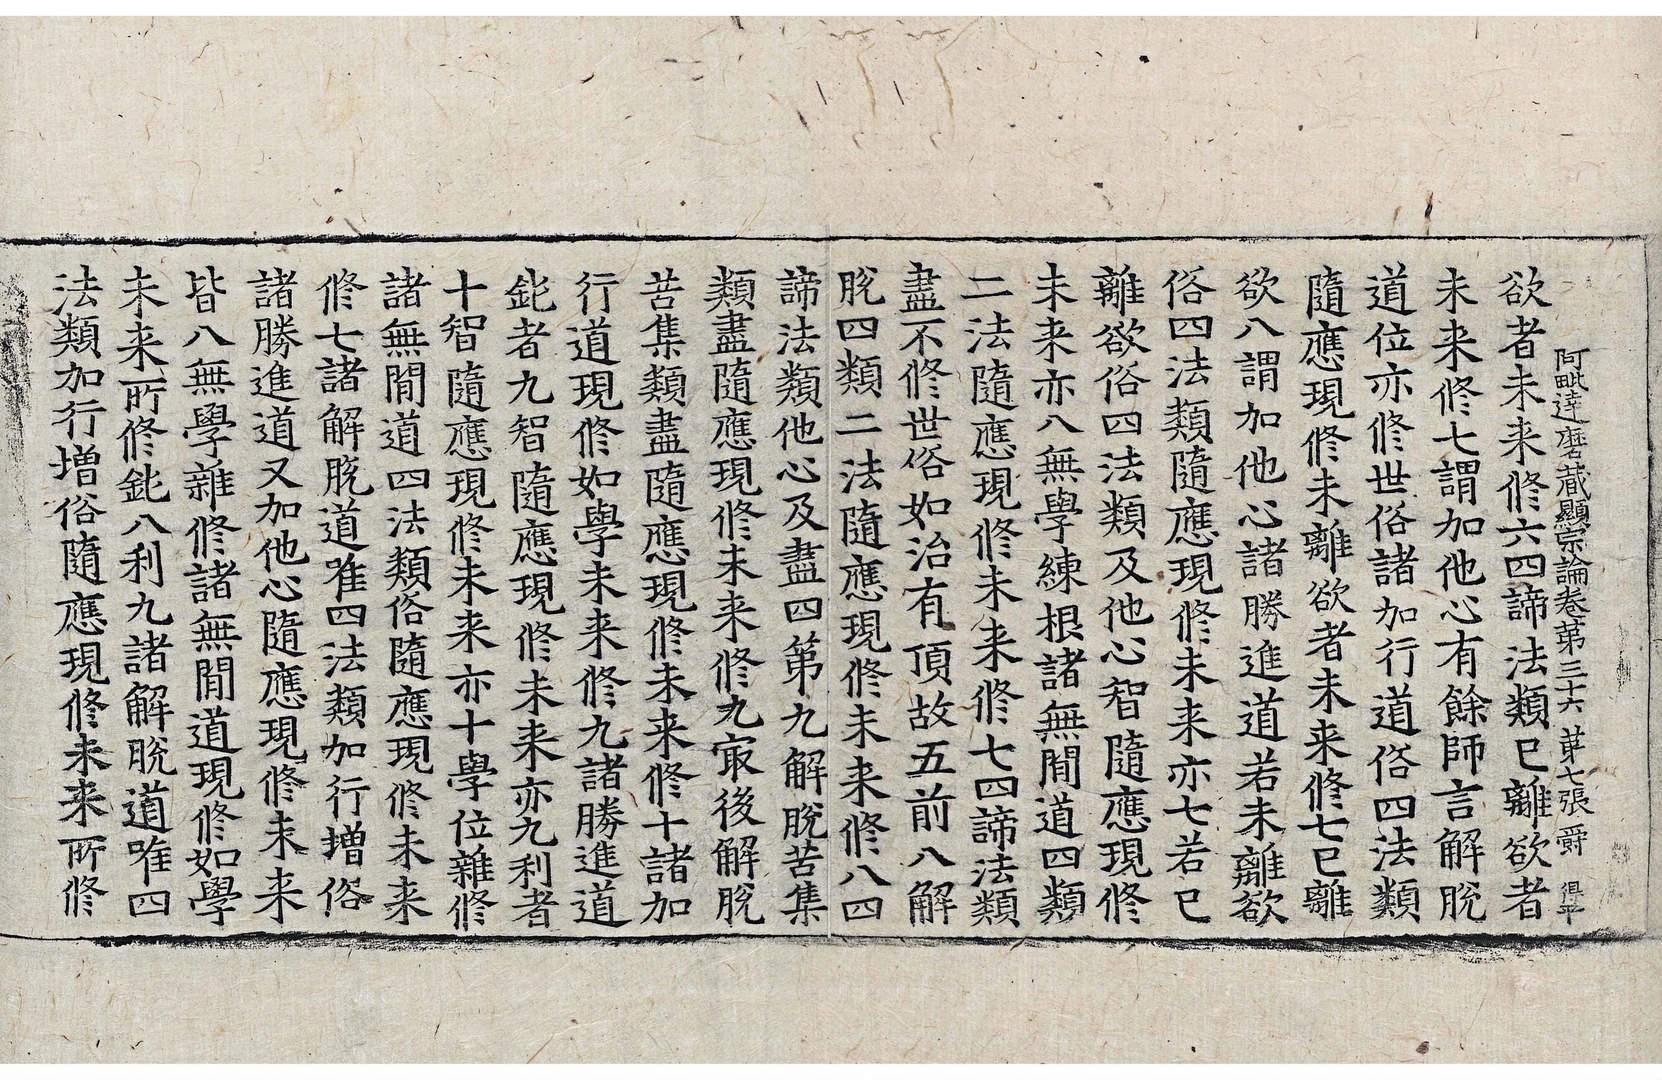 阿毗達磨藏顯宗論卷第三十六 第七張 爵 得平
欲者未来修六四諦法類已離欲者
未来修七謂加他心有餘師言解脫
道位亦修世俗諸加行道俗四法類
隨應現修未離欲者未来修七已離
欲八謂加他心諸勝進道若未離欲
俗四法類隨應現修未来亦七若已
離欲俗四法類及他心智隨應現修
未来亦八無學練根諸無間道四類
二法隨應現修未来修七四諦法類
盡不修世俗如治有頂故五前八解
脫四類二法隨應現修未来修八四
諦法類他心及盡四第九解脫苦集
類盡隨應現修未来修九㝡後解脫
苦集類盡隨應現修未来修十諸加
行道現修如學未来修九諸勝進道
鈍者九智隨應現修未来亦九利者
十智隨應現修未来亦十學位雜修
諸無間道四法類俗隨應現修未来
修七諸解脫道唯四法類加行增俗
諸勝進道又加他心隨應現修未来
皆八無學雜修諸無間道現修如學
未来所修鈍八利九諸解脫道唯四
法類加行增俗隨應現修未来所修